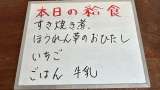 本日の給食
すき焼き煮
ほうれん草のおひたし
いちご
ごはん 牛乳